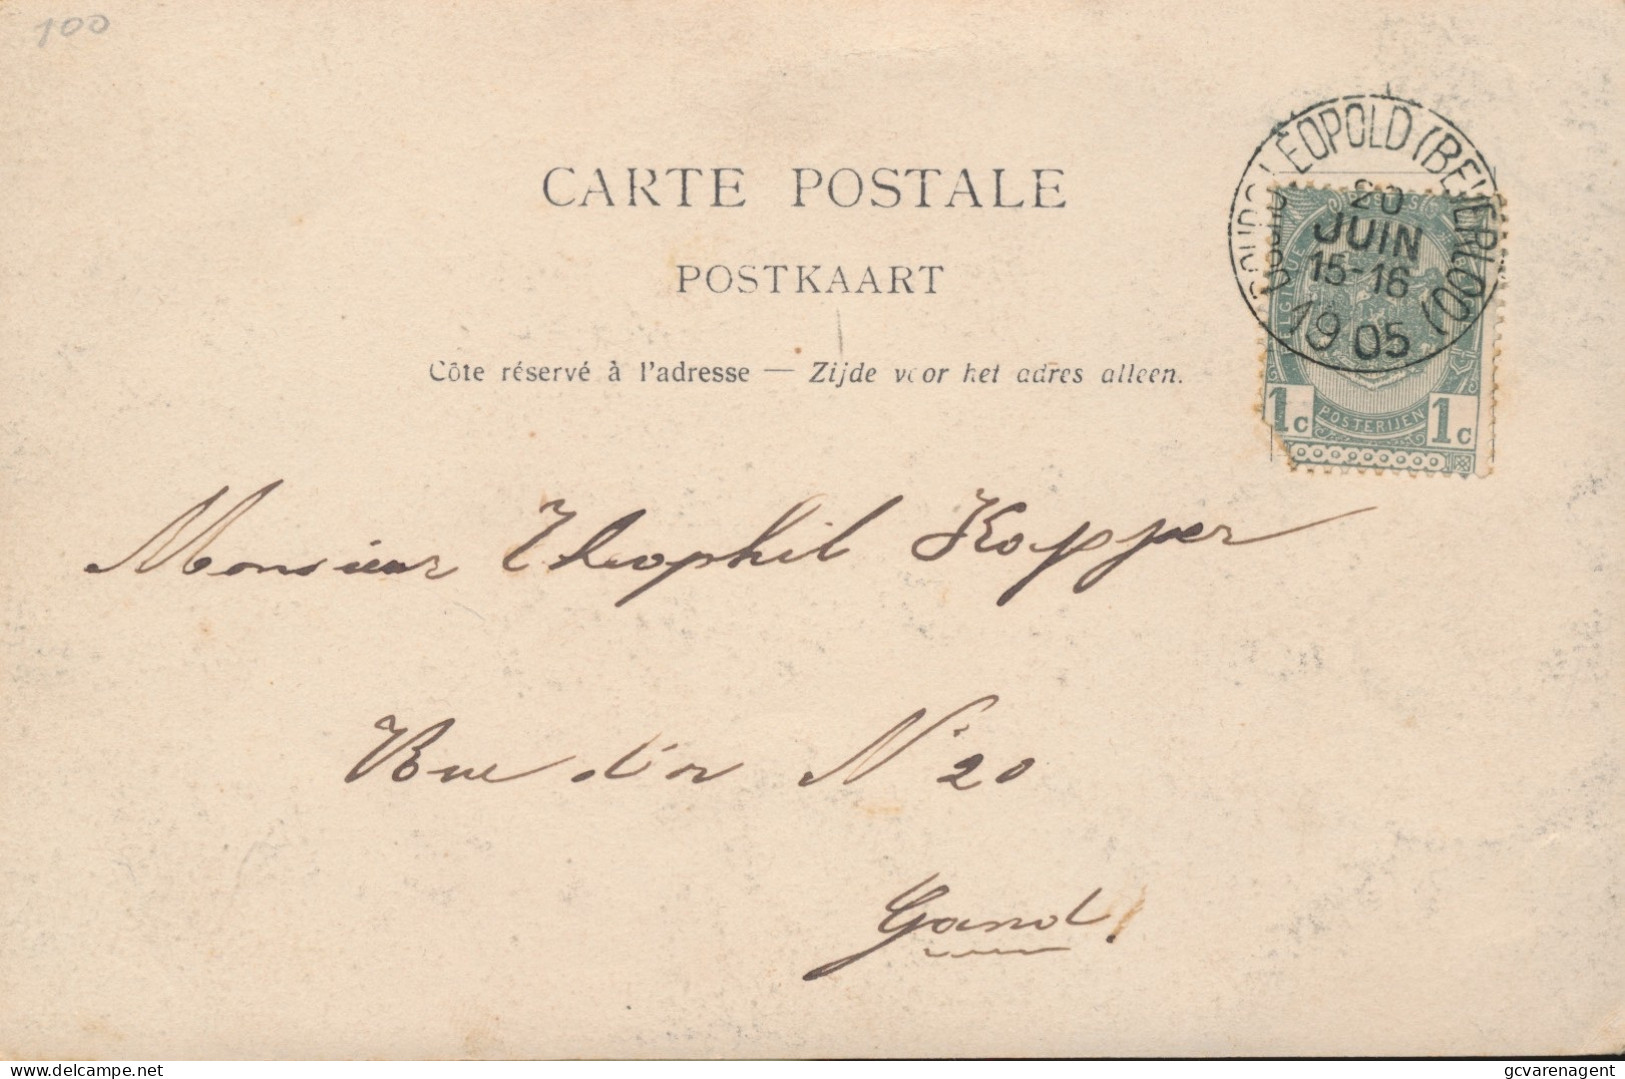 100
BOURG-LÉOPOLD (BEVERLOO)
20
JUIN
15-16
1905
CARTE POSTALE
POSTKAART
Côte réservé à l'adresse — Zijde voor het adres alleen.
1c POSTERIJEN 1c
Monsieur Theophil Kopper
Rue d'or N° 20
Gand!
delcampe.net
gcvarenagent